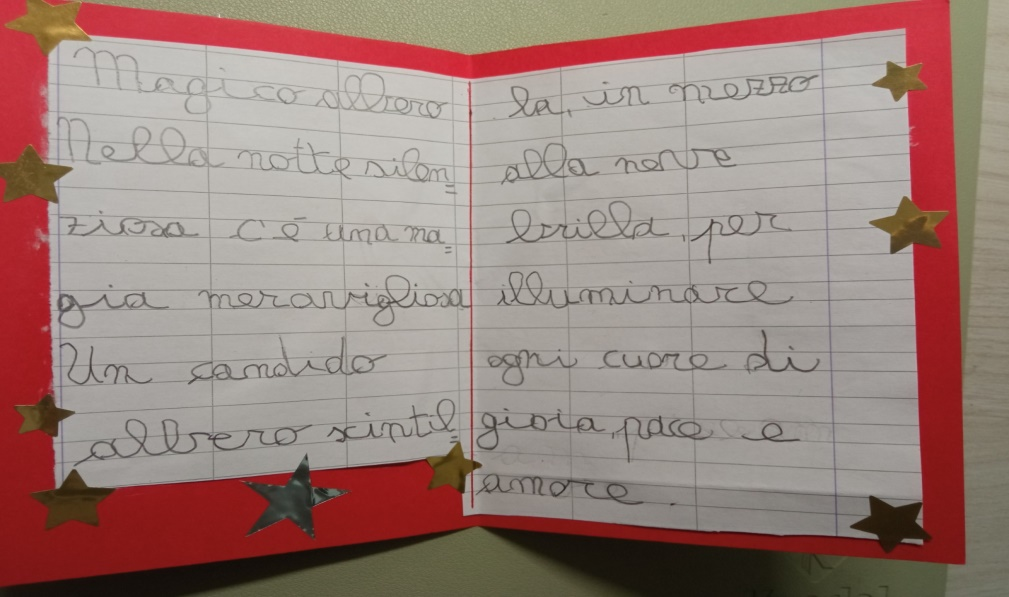 Magico albero
Nella notte silen=
ziosa c'è una ma=
gia meravigliosa
Un candido
albero scintil=
la, in mezzo
alla neve
brilla, per
illuminare
ogni cuore di
gioia, pace e
amore.